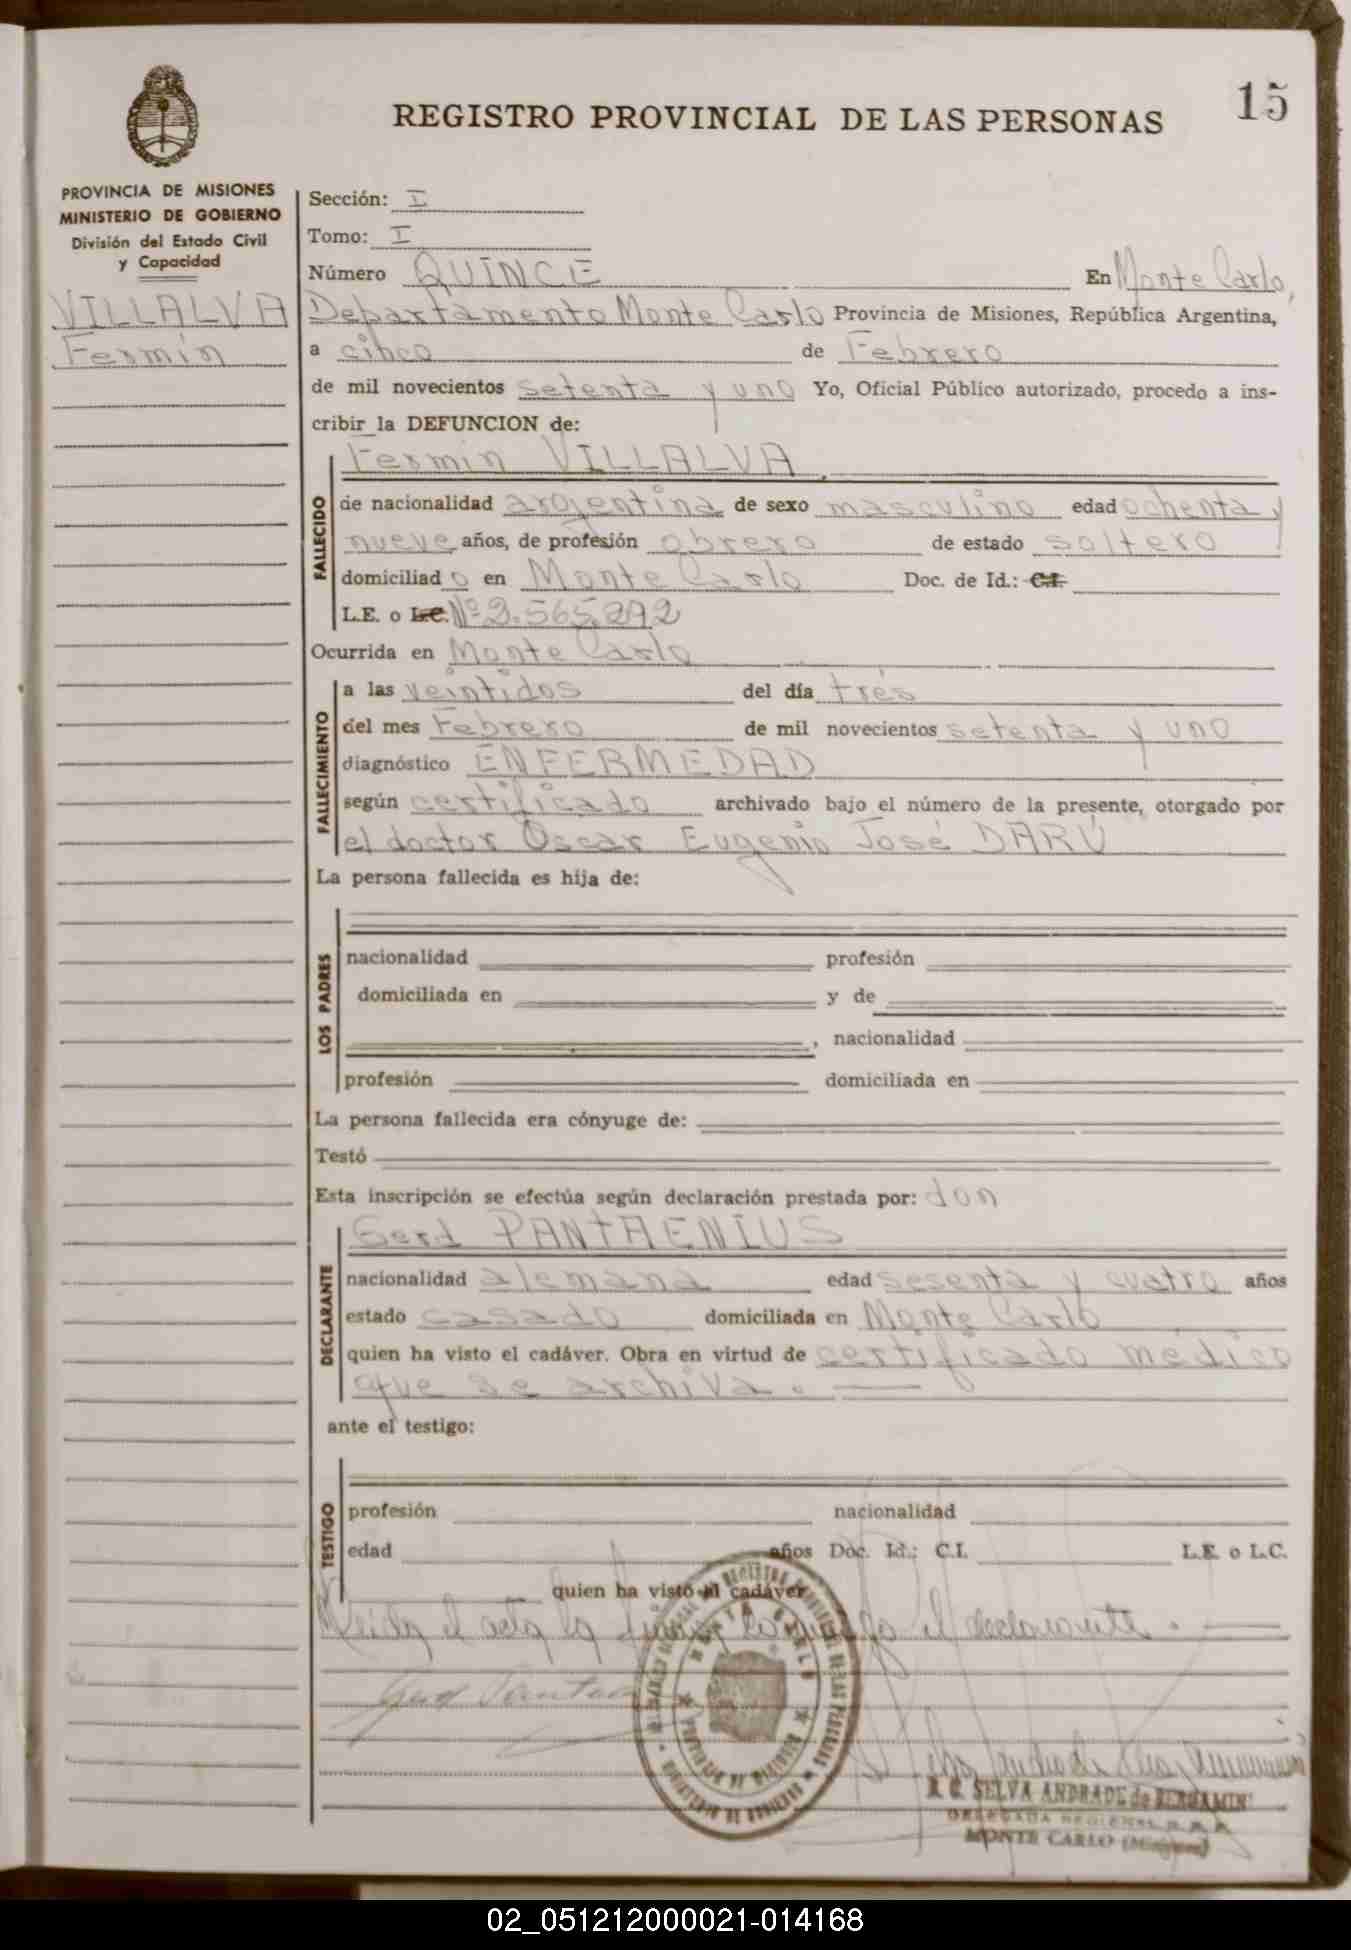 15
REGISTRO PROVINCIAL DE LAS PERSONAS
PROVINCIA DE MISIONES
MINISTERIO DE GOBIERNO
División del Estado Civil
y Capacidad
VILLALVA
Fermín
Sección: I
Tomo: I
Número QUINCE En Monte Carlo,
Departamento Monte Carlo Provincia de Misiones, República Argentina,
a cinco de Febrero
de mil novecientos setenta y uno Yo, Oficial Público autorizado, procedo a ins-
cribir la DEFUNCION de:
Fermín VILLALVA
FALLECIDO
de nacionalidad argentina de sexo masculino edad ochenta y
nueve años, de profesión obrero de estado soltero
domiciliado en Monte Carlo Doc. de Id.: C.I.
L.E. o L.C. Nº 2.565.292
Ocurrida en Monte Carlo
FALLECIMIENTO
a las veintidos del día tres
del mes Febrero de mil novecientos setenta y uno
diagnóstico ENFERMEDAD
según certificado archivado bajo el número de la presente, otorgado por
el doctor Oscar Eugenio José DARÚ
La persona fallecida es hija de:
LOS PADRES
nacionalidad profesión
domiciliada en y de
, nacionalidad
profesión domiciliada en
La persona fallecida era cónyuge de:
Testó
Esta inscripción se efectúa según declaración prestada por: don
Gerd PANTAENIUS
DECLARANTE
nacionalidad alemana edad sesenta y cuatro años
estado casado domiciliada en Monte Carlo
quien ha visto el cadáver. Obra en virtud de certificado médico
que se archiva. —
ante el testigo:
TESTIGO
profesión nacionalidad
edad años Doc. Id.: C.I. L.E. o L.C.
quien ha visto el cadáver
Leida el acta la firma conmigo el declarante. —
Gerd Pantae
MONTE CARLO
PROVINCIA DE MISIONES
R. C. SELVA ANDRADE de BENJAMIN
DELEGADA REGIONAL
MONTE CARLO (Misiones)
02_051212000021-014168